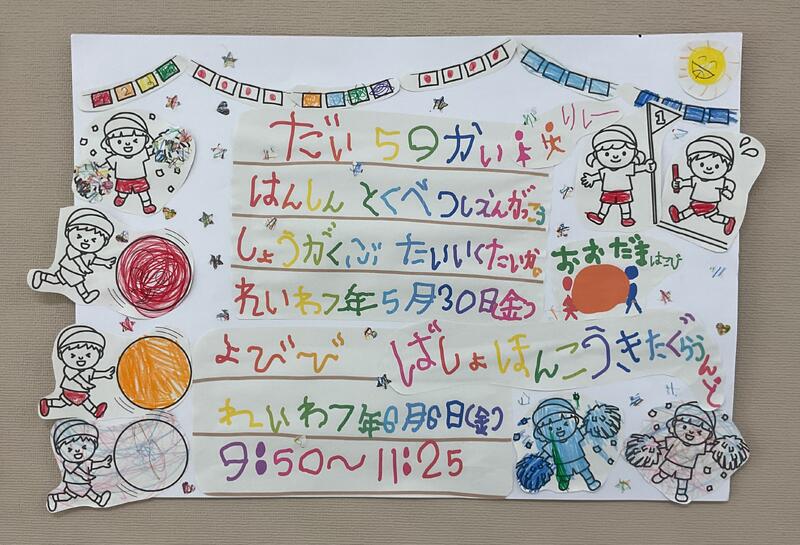 だい59かい
りレー
はんしん とくべつしえんがっこう
しょうがくぶ たいいくたいかい
おおだまはこび
れいわ7年5月30日(金)
よびび
ばしょ ほんこうきたぐらうんど
れいわ7年6月6日(金)
9:50〜11:25
1